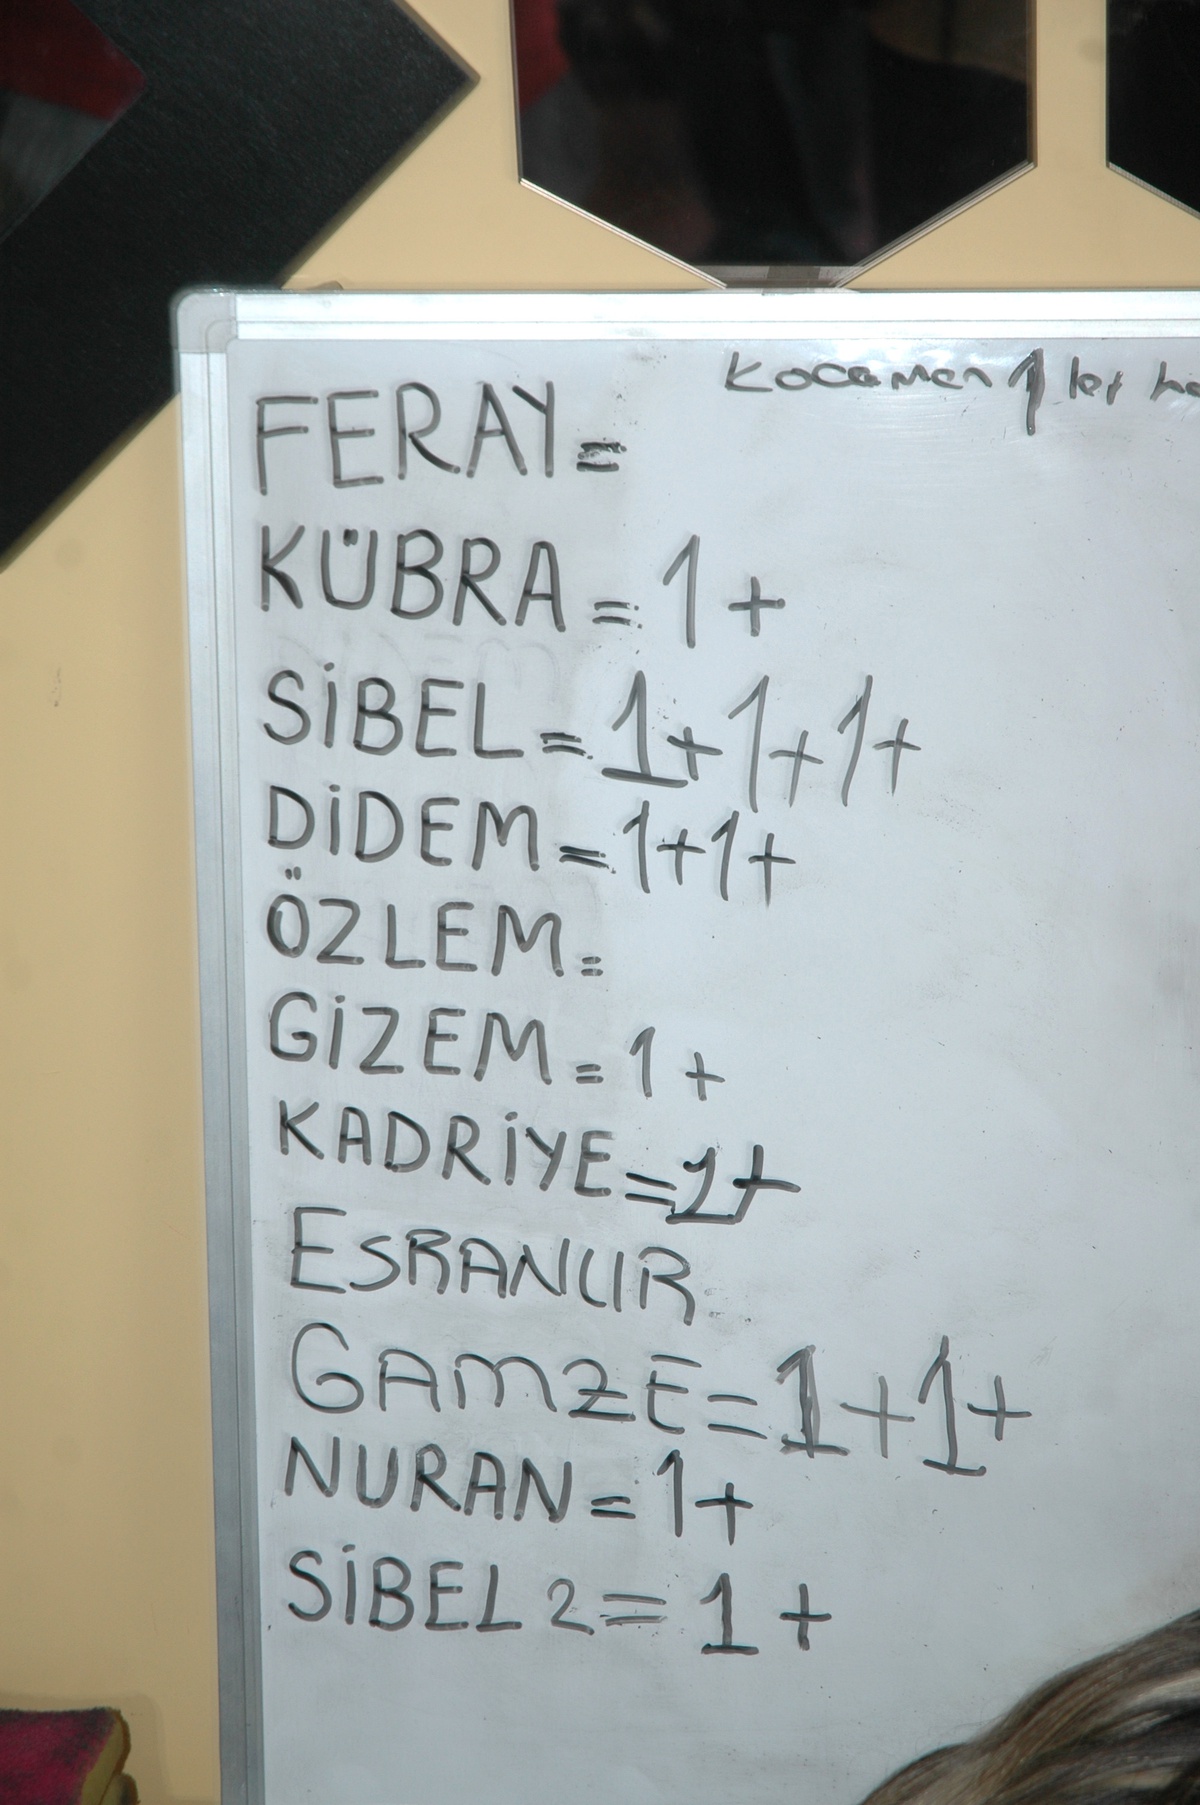 Kocamen 1 ler
FERAY=
KÜBRA = 1 +
SİBEL = 1+1+1+
DİDEM = 1+1+
ÖZLEM =
GİZEM = 1 +
KADRİYE = 1+
ESRANUR
GAMZE = 1+1+
NURAN = 1+
SİBEL 2 = 1 +